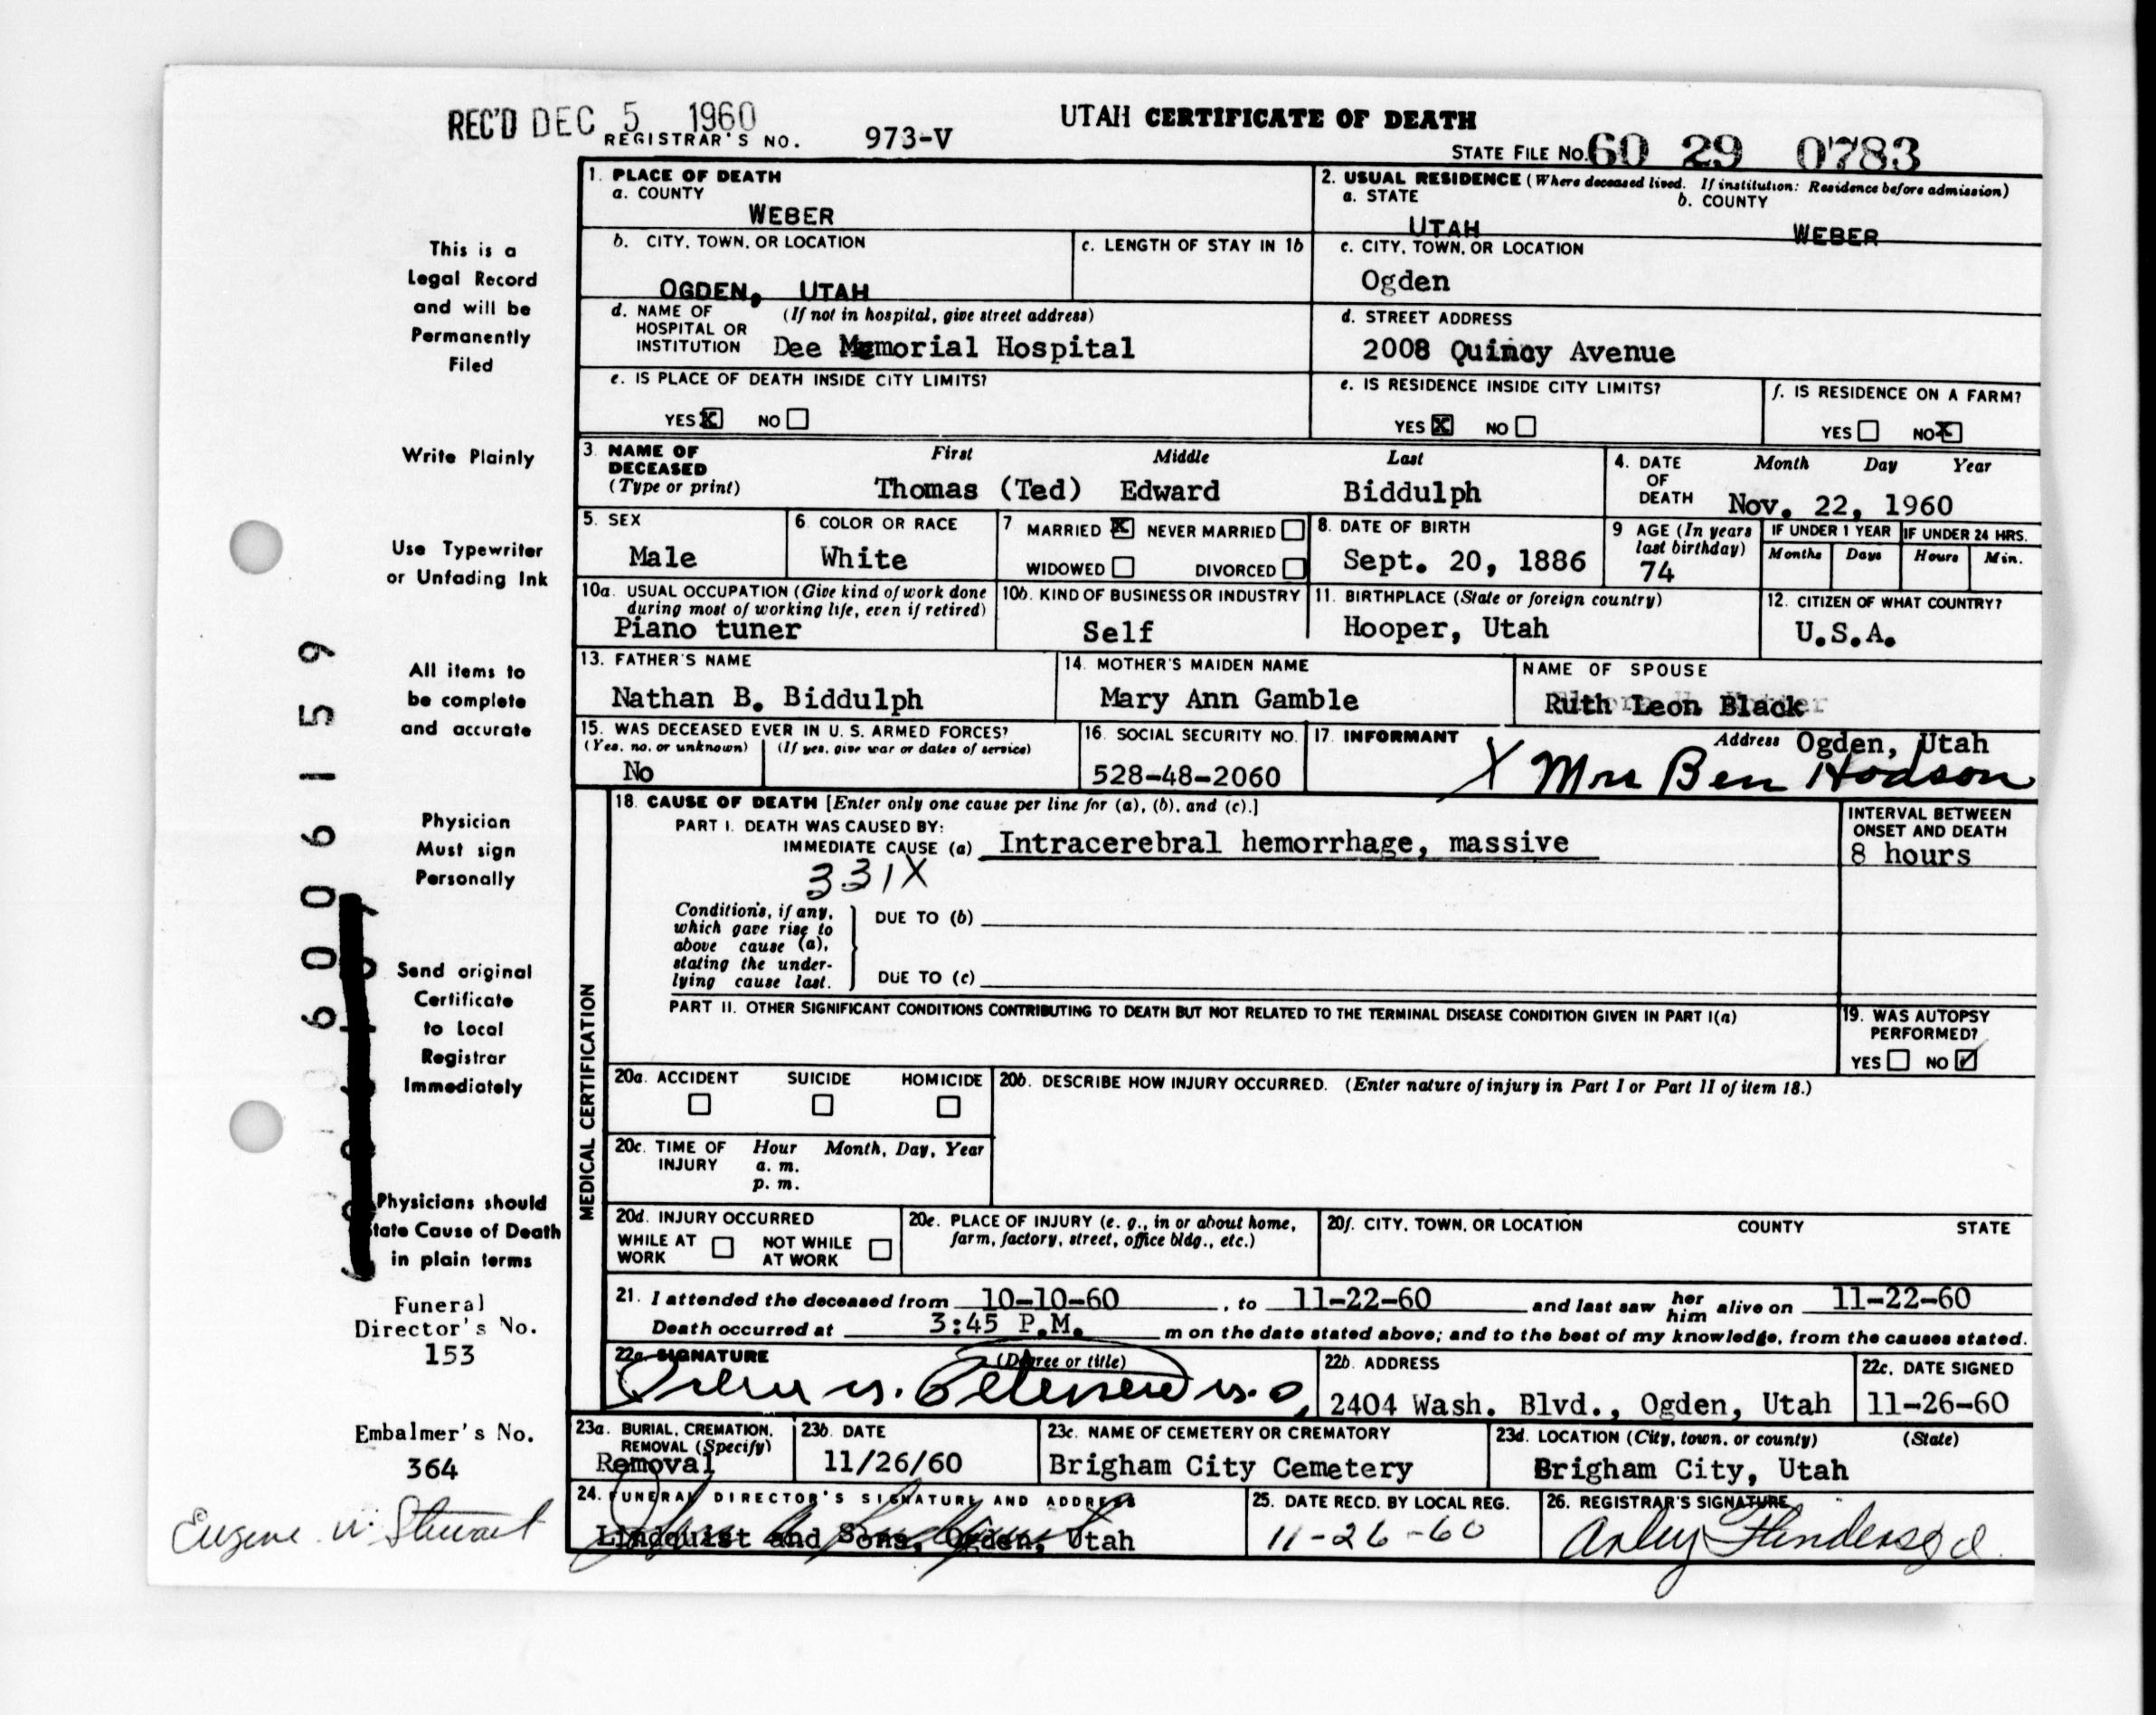 REC'D DEC 5 1960
REGISTRAR'S NO. 973-V
UTAH CERTIFICATE OF DEATH
STATE FILE NO. 60 29 0783
This is a
Legal Record
and will be
Permanently
Filed
Write Plainly
Use Typewriter
or Unfading Ink
All items to
be complete
and accurate
Physician
Must sign
Personally
Send original
Certificate
to Local
Registrar
Immediately
Physicians should
tate Cause of Death
in plain terms
Funeral
Director's No.
153
Embalmer's No.
364
Eugene W. Stewart
6006159
1. PLACE OF DEATH
a. COUNTY
WEBER
2. USUAL RESIDENCE (Where deceased lived. If institution: Residence before admission)
a. STATE b. COUNTY
UTAH WEBER
b. CITY, TOWN, OR LOCATION
OGDEN, UTAH
c. LENGTH OF STAY IN 1b
c. CITY, TOWN, OR LOCATION
Ogden
d. NAME OF (If not in hospital, give street address)
HOSPITAL OR
INSTITUTION Dee Memorial Hospital
d. STREET ADDRESS
2008 Quincy Avenue
e. IS PLACE OF DEATH INSIDE CITY LIMITS?
YES X NO
e. IS RESIDENCE INSIDE CITY LIMITS?
YES X NO
f. IS RESIDENCE ON A FARM?
YES NO X
3. NAME OF First Middle Last
DECEASED
(Type or print) Thomas (Ted) Edward Biddulph
4. DATE Month Day Year
OF
DEATH Nov. 22, 1960
5. SEX
Male
6. COLOR OR RACE
White
7 MARRIED X NEVER MARRIED
WIDOWED DIVORCED
8. DATE OF BIRTH
Sept. 20, 1886
9 AGE (In years
last birthday)
74
IF UNDER 1 YEAR IF UNDER 24 HRS.
Months Days Hours Min.
10a. USUAL OCCUPATION (Give kind of work done
during most of working life, even if retired)
Piano tuner
10b. KIND OF BUSINESS OR INDUSTRY
Self
11. BIRTHPLACE (State or foreign country)
Hooper, Utah
12. CITIZEN OF WHAT COUNTRY?
U.S.A.
13. FATHER'S NAME
Nathan B. Biddulph
14. MOTHER'S MAIDEN NAME
Mary Ann Gamble
NAME OF SPOUSE
Ruth Leon Black
15. WAS DECEASED EVER IN U. S. ARMED FORCES?
(Yes, no, or unknown) (If yes, give war or dates of service)
No
16. SOCIAL SECURITY NO.
528-48-2060
17. INFORMANT Address Ogden, Utah
X Mrs Ben Hodson
MEDICAL CERTIFICATION
18. CAUSE OF DEATH [Enter only one cause per line for (a), (b), and (c).]
PART I. DEATH WAS CAUSED BY:
IMMEDIATE CAUSE (a) Intracerebral hemorrhage, massive
331X
INTERVAL BETWEEN
ONSET AND DEATH
8 hours
Conditions, if any,
which gave rise to
above cause (a),
stating the under-
lying cause last.
DUE TO (b)
DUE TO (c)
PART II. OTHER SIGNIFICANT CONDITIONS CONTRIBUTING TO DEATH BUT NOT RELATED TO THE TERMINAL DISEASE CONDITION GIVEN IN PART I(a)
19. WAS AUTOPSY
PERFORMED?
YES NO ✓
20a. ACCIDENT SUICIDE HOMICIDE
20b. DESCRIBE HOW INJURY OCCURRED. (Enter nature of injury in Part I or Part II of item 18.)
20c. TIME OF Hour Month, Day, Year
INJURY a. m.
p. m.
20d. INJURY OCCURRED
WHILE AT NOT WHILE
WORK AT WORK
20e. PLACE OF INJURY (e. g., in or about home,
farm, factory, street, office bldg., etc.)
20f. CITY, TOWN, OR LOCATION COUNTY STATE
21. I attended the deceased from 10-10-60, to 11-22-60 and last saw her him alive on 11-22-60
Death occurred at 3:45 P.M. m on the date stated above; and to the best of my knowledge, from the causes stated.
22a. SIGNATURE (Degree or title)
22b. ADDRESS
2404 Wash. Blvd., Ogden, Utah
22c. DATE SIGNED
11-26-60
23a. BURIAL, CREMATION,
REMOVAL (Specify)
Removal
23b. DATE
11/26/60
23c. NAME OF CEMETERY OR CREMATORY
Brigham City Cemetery
23d. LOCATION (City, town, or county) (State)
Brigham City, Utah
24. FUNERAL DIRECTOR'S SIGNATURE AND ADDRESS
Lindquist and Sons, Ogden, Utah
25. DATE RECD. BY LOCAL REG.
11-26-60
26. REGISTRAR'S SIGNATURE